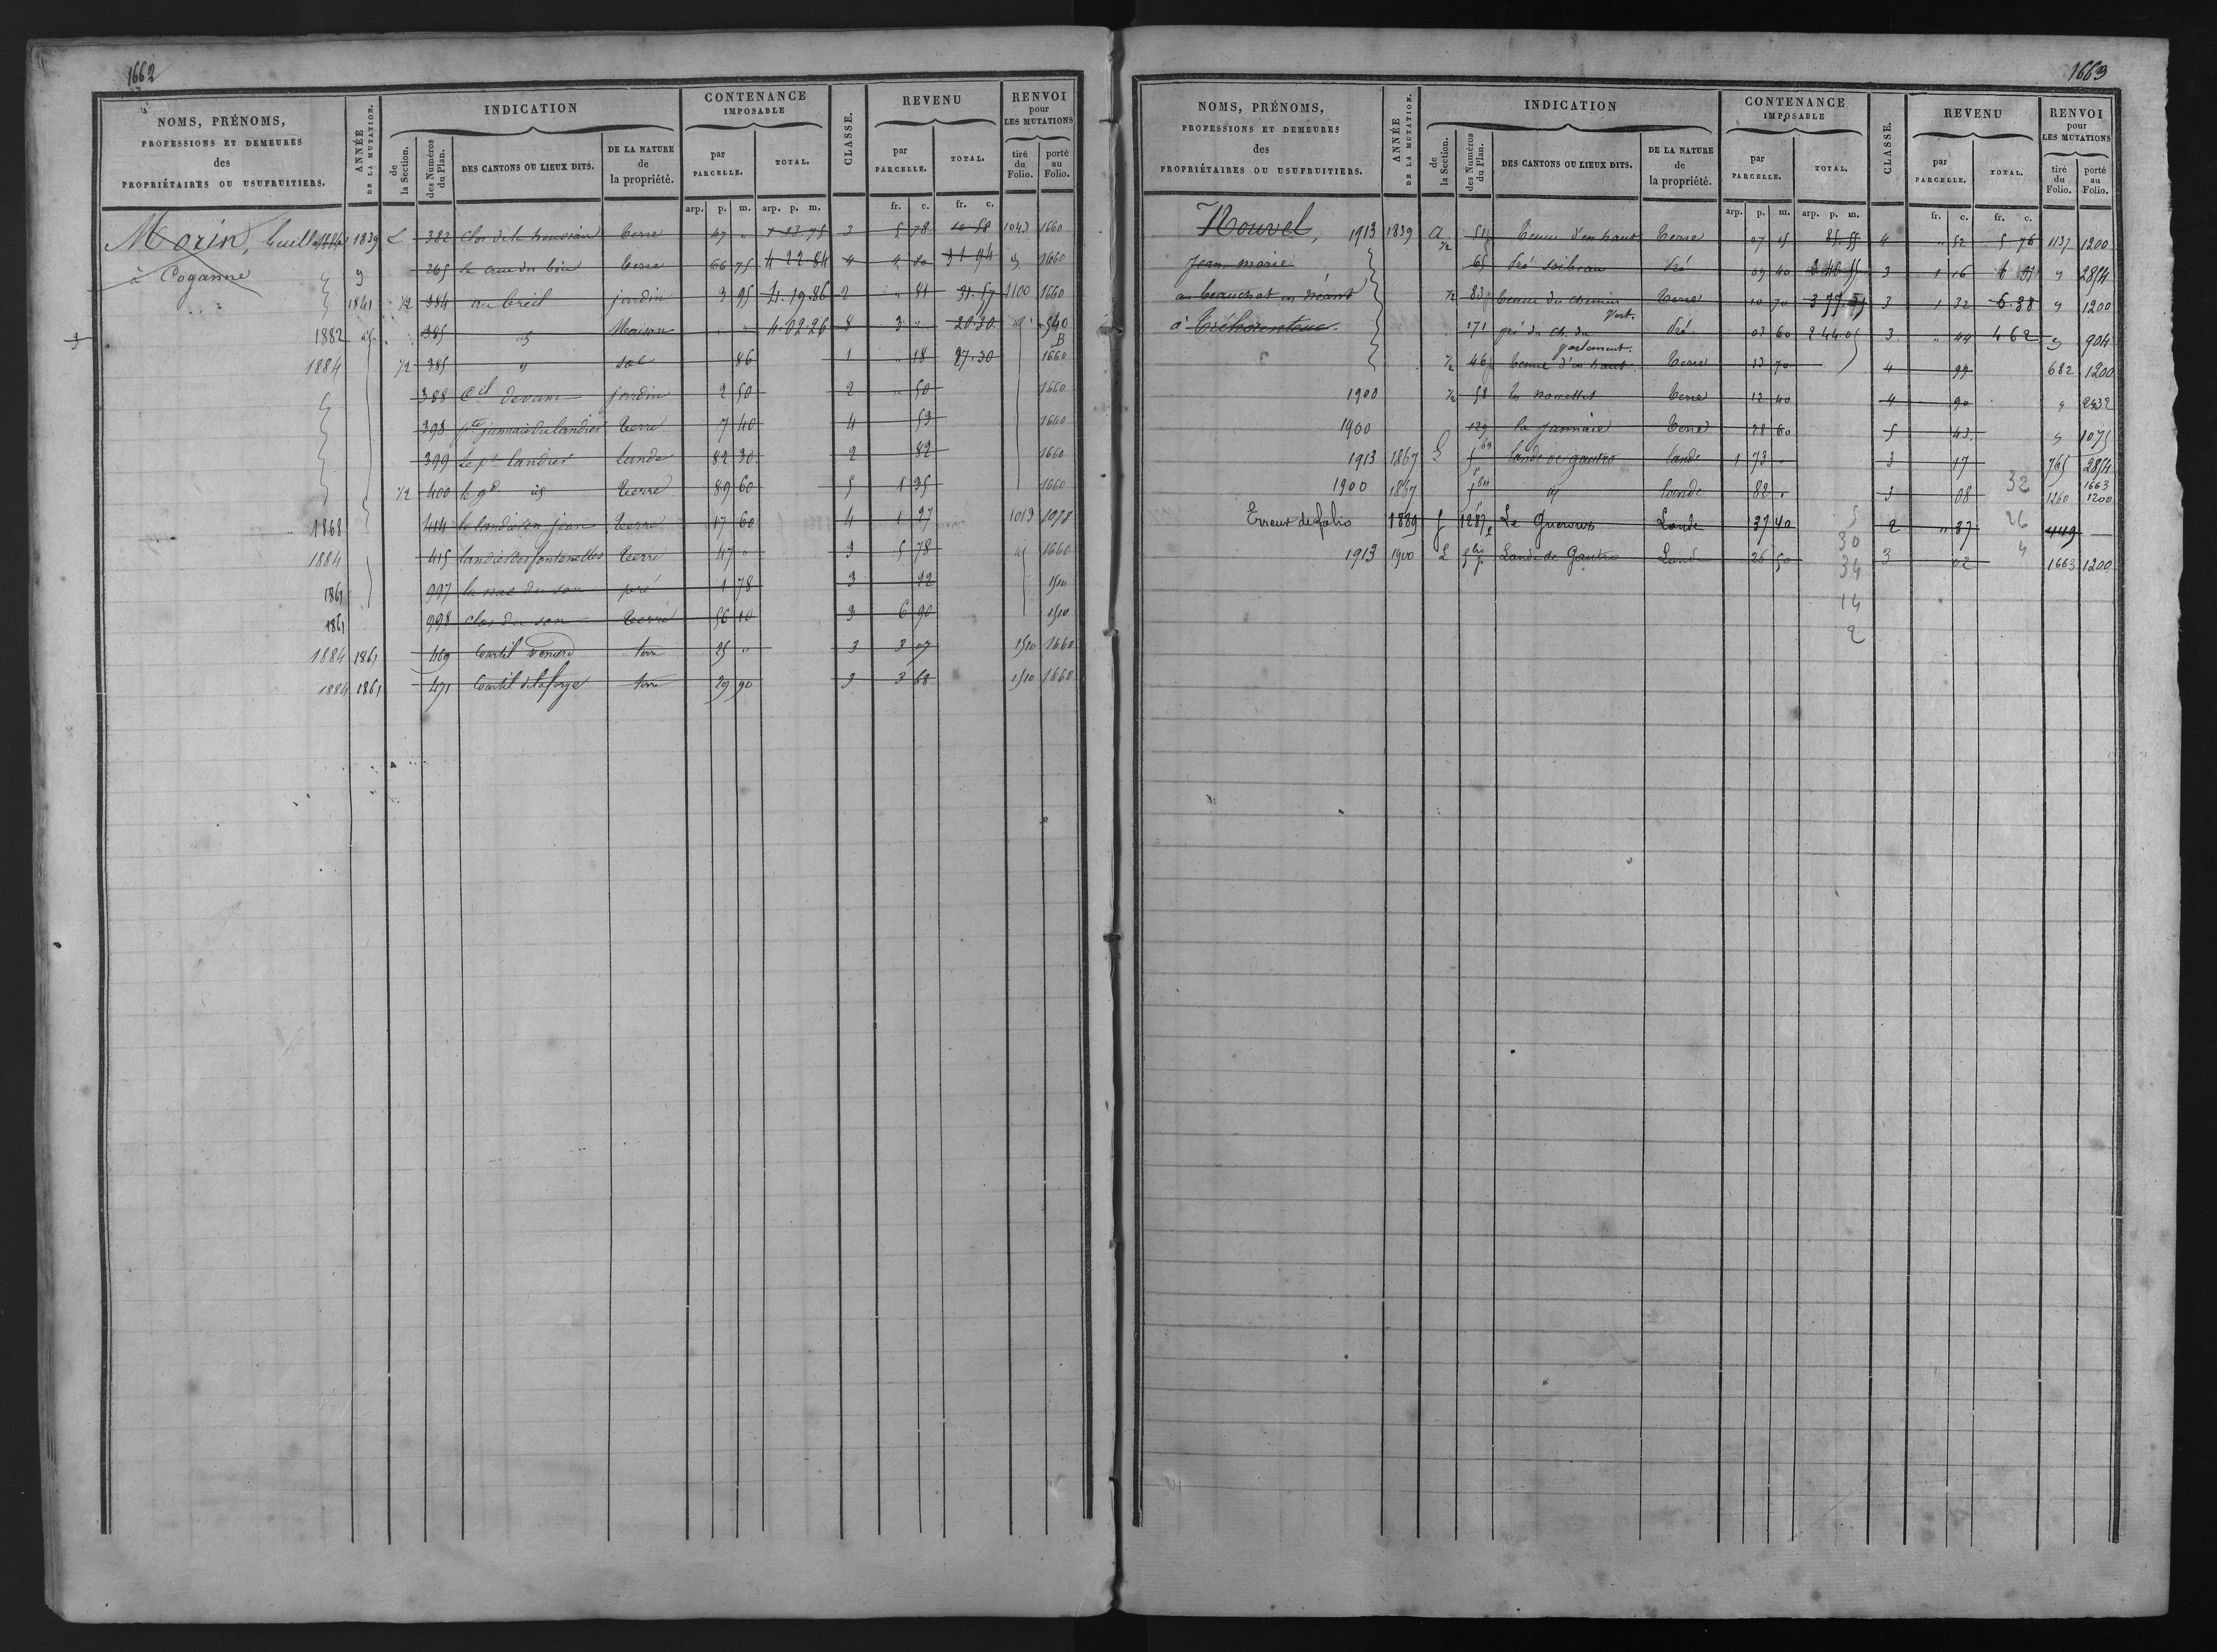 1662
NOMS, PRÉNOMS, PROFESSIONS ET DEMEURES des PROPRIÉTAIRES OU USUFRUITIERS.
ANNÉE DE LA MUTATION.
INDICATION
de la Section.
des Numéros du Plan.
DES CANTONS OU LIEUX DITS.
DE LA NATURE de la propriété.
CONTENANCE IMPOSABLE
par PARCELLE.
TOTAL.
CLASSE.
REVENU
par PARCELLE.
TOTAL.
RENVOI pour LES MUTATIONS
tiré du Folio.
porté au Folio.
arp. p. m. arp. p. m. fr. c. fr. c.
Morin, 1839 L 382 Clos de la terre 47 " 1 13 75 3 5 78 10 58 1043 1660
à Coganne 265 terre 66 75 4 22 84 4 4 80 31 94 1660
1841 1/2 384 au breil jardin 3 95 4.19.86 2 " 81 31.57 1100 1660
1882 385 id Maison " " 4.02.26 8 3 " 20.30 id 540
B
1884 1/2 385 " sol 86 1 " 18 27.30 1660
388 Ctl devant jardin 2 50 2 " 50 1660
398 pte jannaie du landier terre 7 40 4 53 1660
399 le pt landier lande 82 30 2 82 1660
1/2 400 le gd id terre 89 60 5 1 35 1660
1868 414 jean terre 17 60 4 1 27 1019 1078
1884 415 landier des fontenelles terre 47 " 3 5 78 id 1660
1861 997 du son pré 1 78 3 22 1510
1861 998 clos du son terre 56 10 3 6 90 1510
1884 1861 469 Courtil terre 25 " 3 3 07 1510 1660
1884 1861 471 Courtil de la forge terre 29 90 3 3 68 1510 1660
1663
NOMS, PRÉNOMS, PROFESSIONS ET DEMEURES des PROPRIÉTAIRES OU USUFRUITIERS.
ANNÉE DE LA MUTATION.
INDICATION
de la Section.
des Numéros du Plan.
DES CANTONS OU LIEUX DITS.
DE LA NATURE de la propriété.
CONTENANCE IMPOSABLE
par PARCELLE.
TOTAL.
CLASSE.
REVENU
par PARCELLE.
TOTAL.
RENVOI pour LES MUTATIONS
tiré du Folio.
porté au Folio.
arp. p. m. arp. p. m. fr. c. fr. c.
Nouvel, 1913 1839 A 1/2 51 tenue d'en haut terre 07 15 85.55 4 " 52 5 76 1137 1200
Jean marie 65 Pré Pré 09 40 3 1 16 " 2814
au beauchat en Néant 1/2 83 tenue du chemin vert. terre 10 70 3 1 32 6.38 " 1200
à Tréhorenteuc. 171 pré du ch. du parlement. Pré 03 60 2 44.05 3 " 44 4 62 " 904
1/2 46 tenue d'en haut terre 13 70 4 99 682 1200
1900 1/2 58 les nouettes terre 12 40 4 90 " 2432
1900 129 la jannaie terre 28 60 5 43 " 1075
1913 1867 L lande de gautro lande 1 73 " 3 17 765 2814
1900 1867 5 bis id lande 82 " 3 08 32 1260 1663 1200
Erreur de folio 1889 1287 Le Lande 37 40 5 2 " 37 26 449 —
1913 1900 L Lande de Gautro Lande 26 50 30 3 02 4 1663 1200
34
14
2